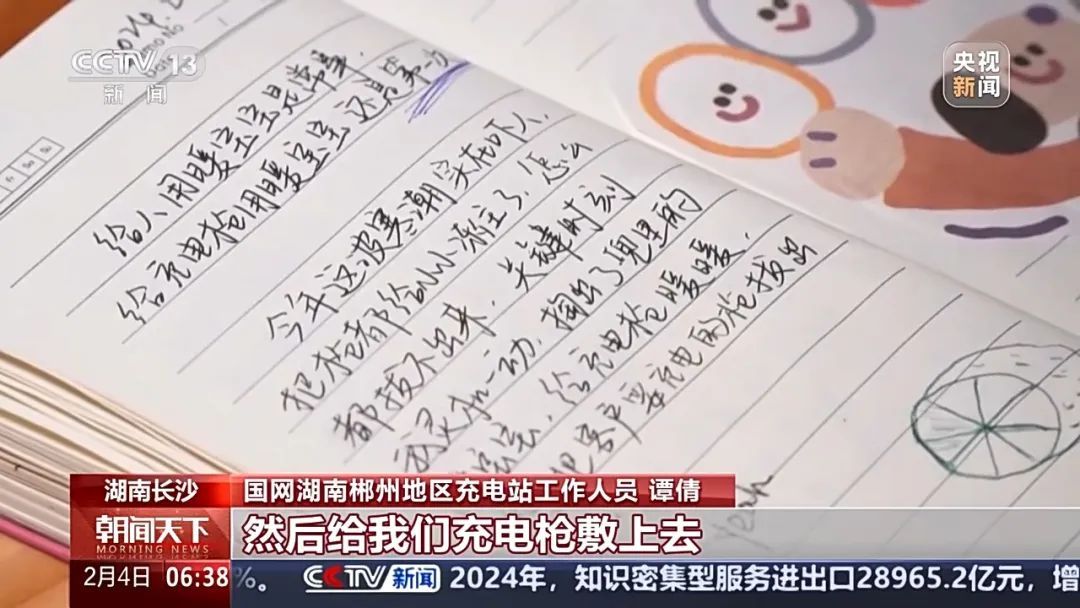 CCTV 13
新闻
央视
新闻
给人用暖宝宝是常事,
给充电枪用暖宝宝还是第一次
今年这波寒潮实在吓人,
把枪都给冰冻住了,怎么
都拔不出来,关键时刻
我灵机一动,掏出了兜里的
宝宝,给充电枪暖暖,
把客户要充电的枪拔出
湖南长沙
国网湖南郴州地区充电站工作人员 谭倩
朝闻天下
MORNING NEWS
然后给我们充电枪敷上去
2月4日 06:38
%。 CCTV新闻 2024年,知识密集型服务进出口28965.2亿元,增